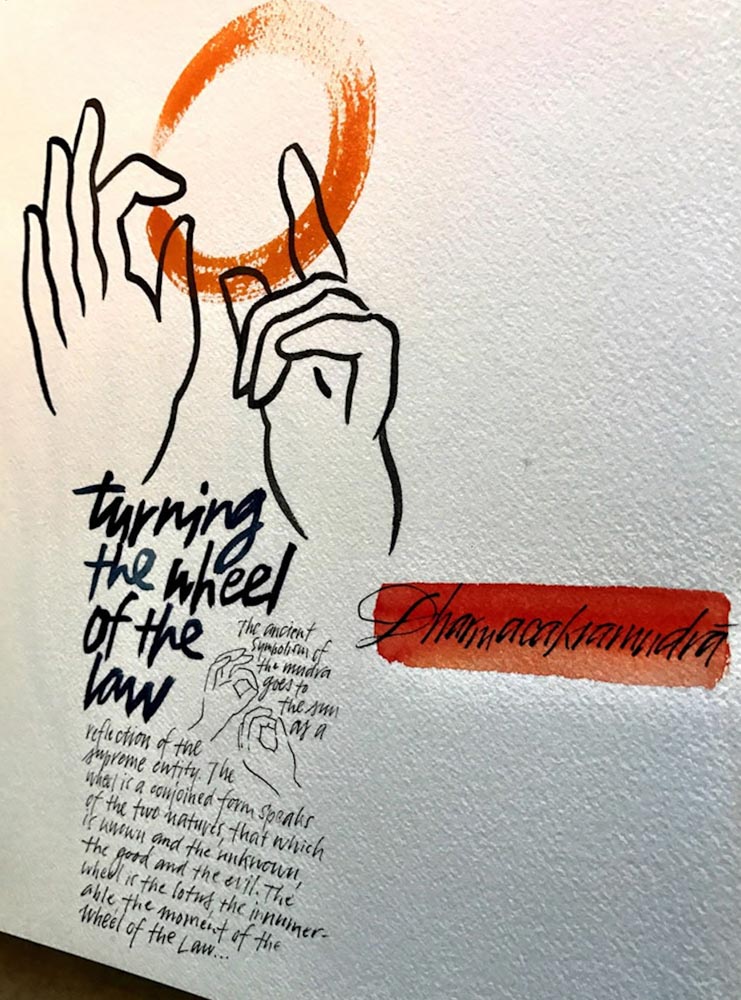 turning
the wheel
of the
law
The ancient
symbolism of
the mudra
goes to
the sun
as a
reflection of the
supreme entity. The
wheel is a conjoined form speaks
of the two natures, that which
is known and the unknown,
the good and the evil. The
wheel is the lotus, the innumer-
able, the moment of the
Wheel of the Law...
Dharmacakramudrā